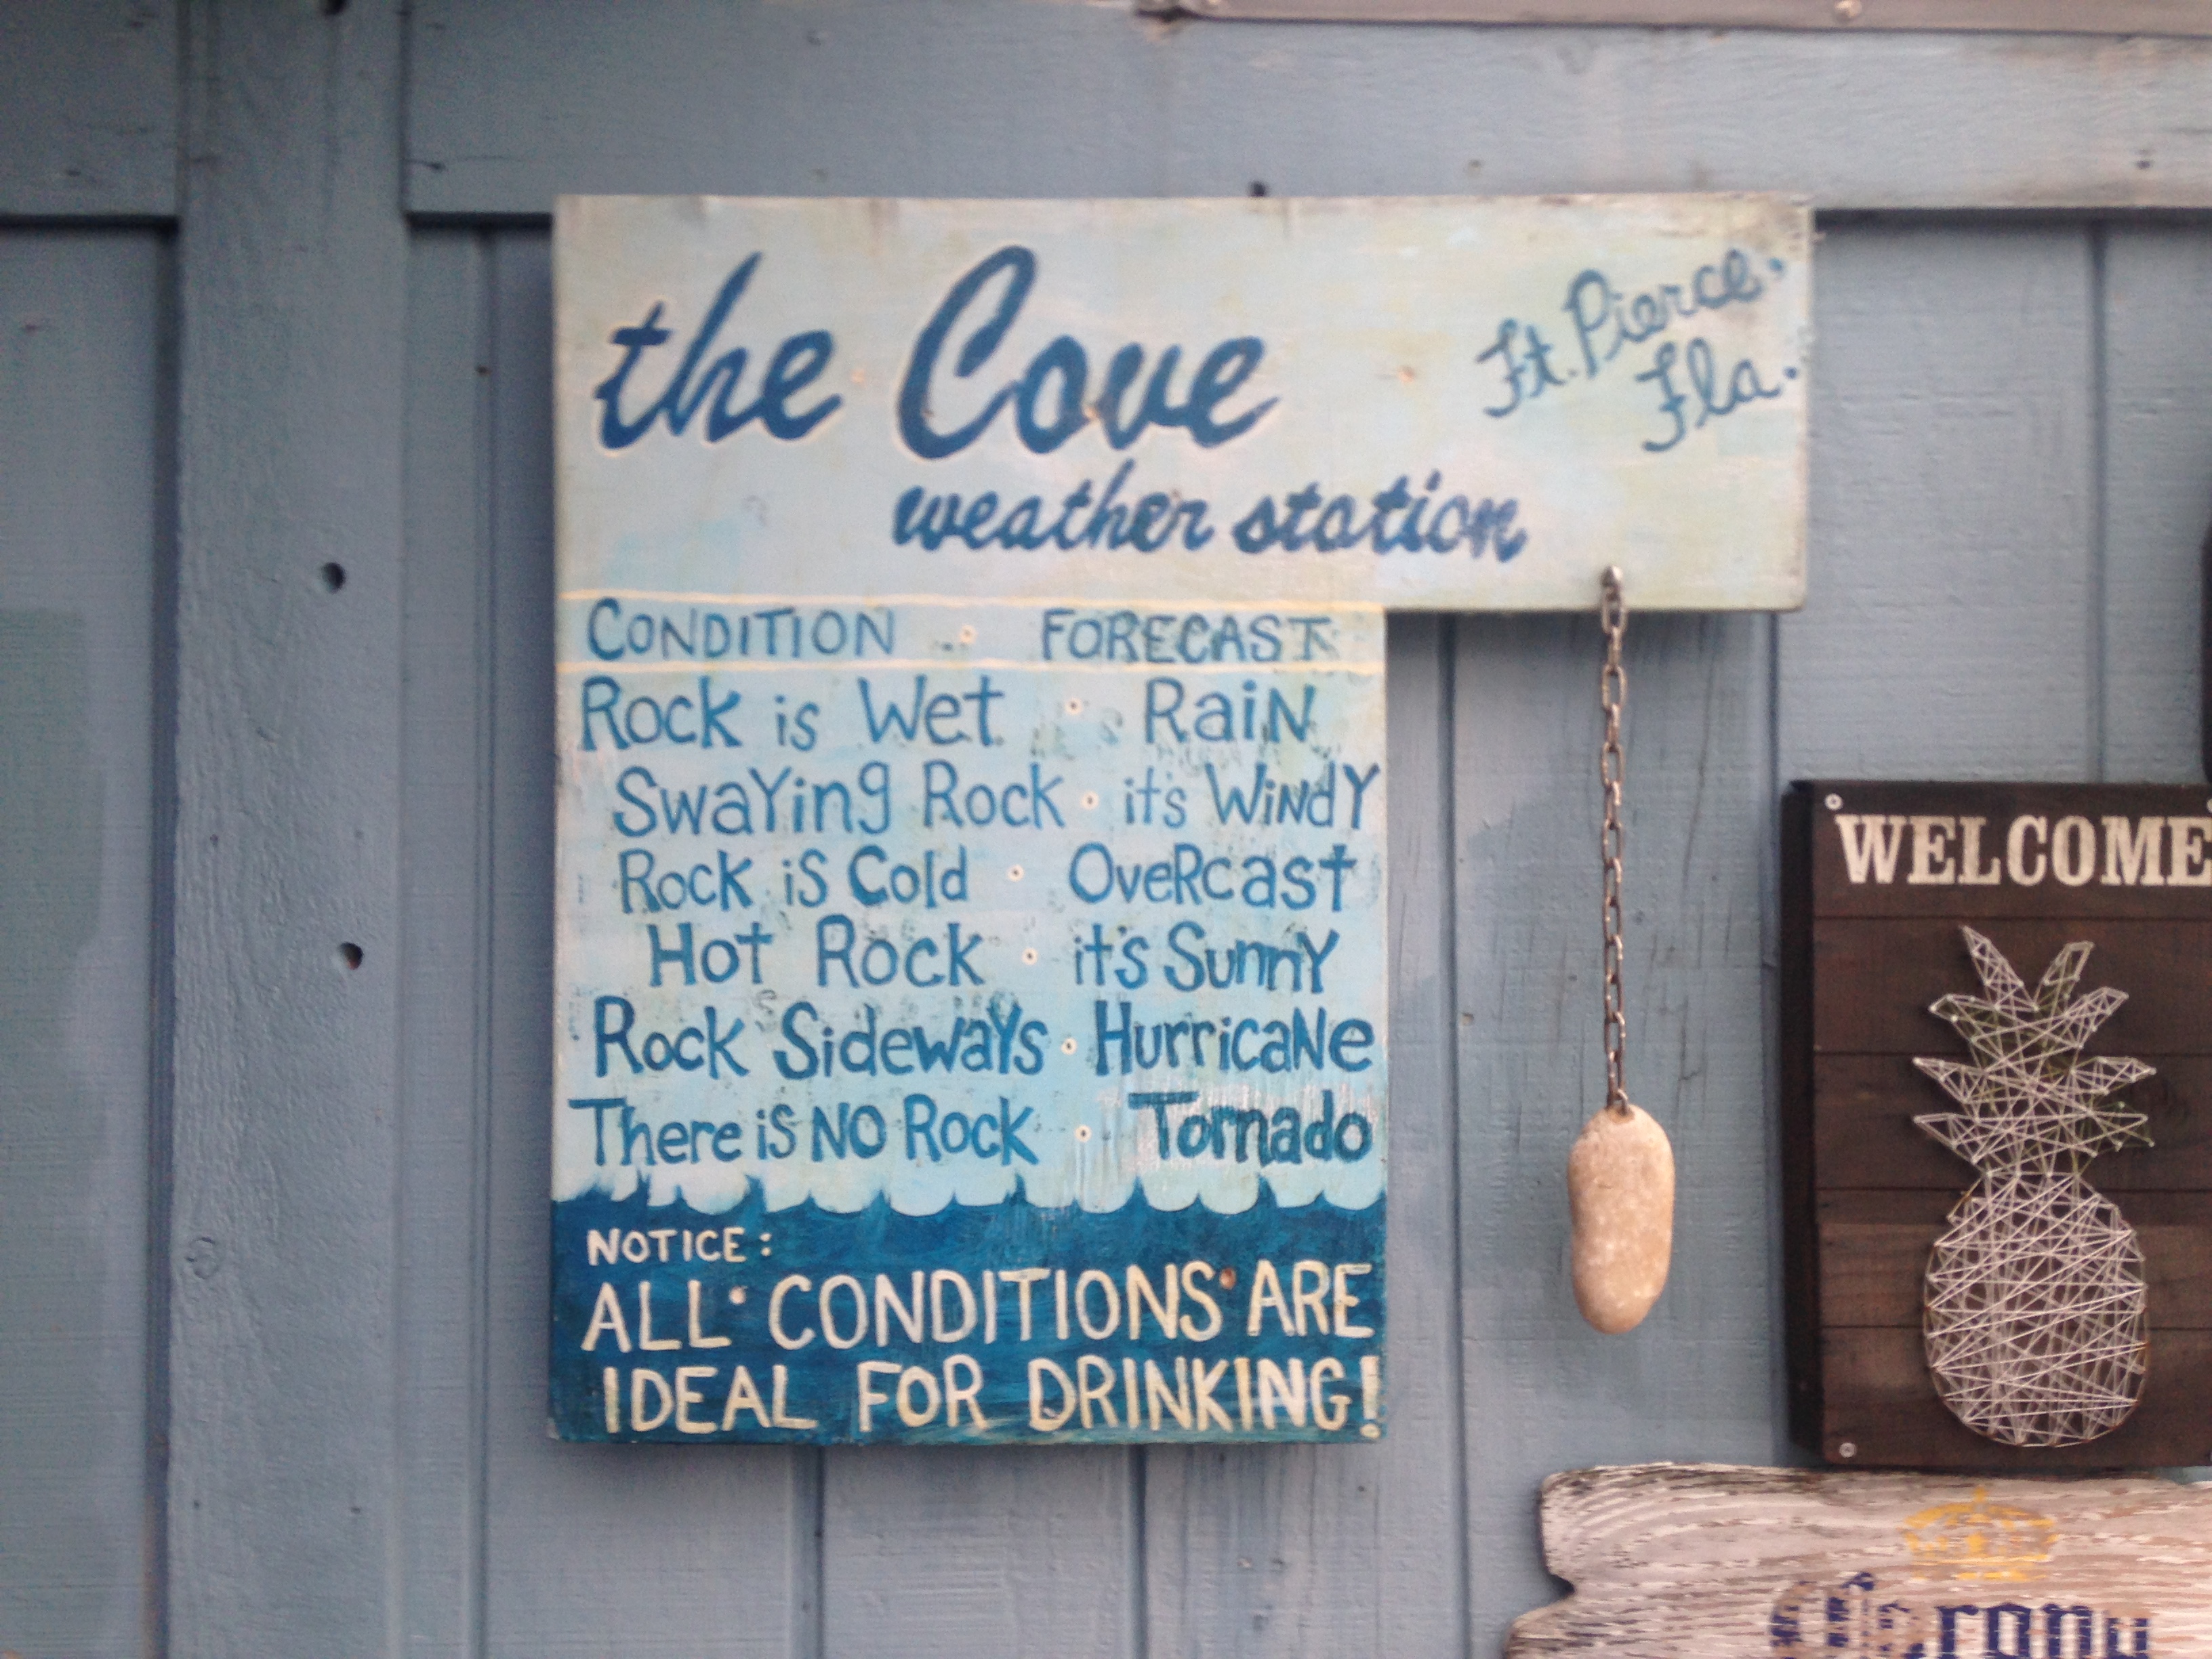 the Cove
Ft. Pierce.
Fla.
weather station
CONDITION . FORECAST
Rock is Wet . RaiN
SwaYing Rock . it's WiNdY
Rock iS Cold . OveRcast
Hot Rock . it's SunnY
Rock SidewaYs . HurricaNe
There iS NO Rock . Tornado
NOTICE:
ALL CONDITIONS ARE
IDEAL FOR DRINKING!
WELCOME
Corona